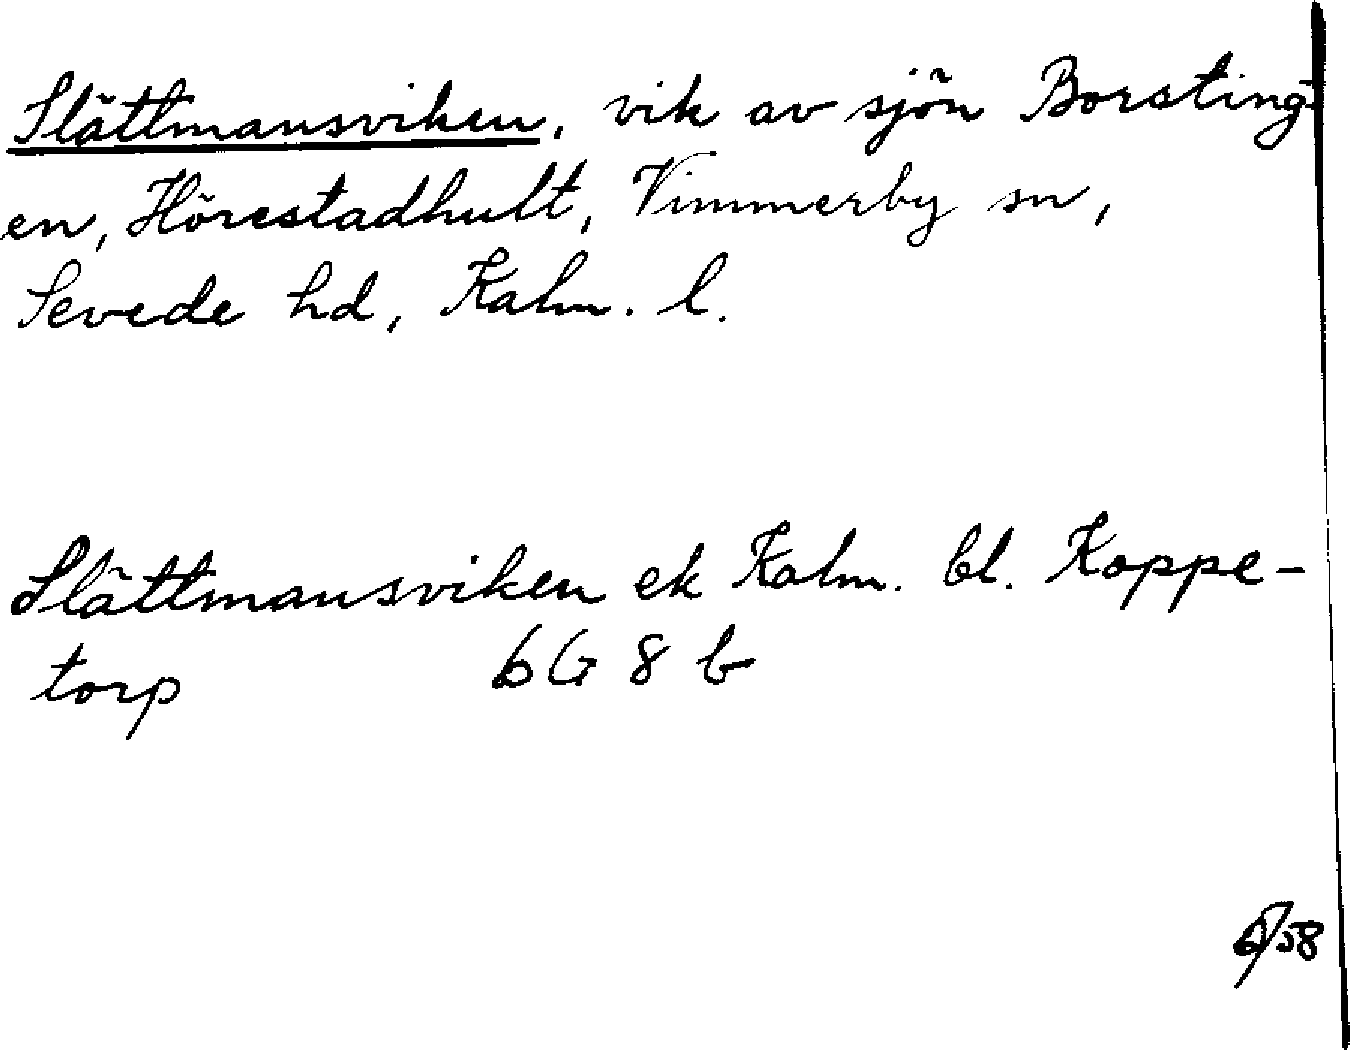 Slättmansviken, vik av sjön Borsting-
en, Hörestadhult, Vimmerby sn,
Sevede hd, Kalm. l.
Slättmansviken ek Kalm. bl. Koppe-
torp 6G 8 b